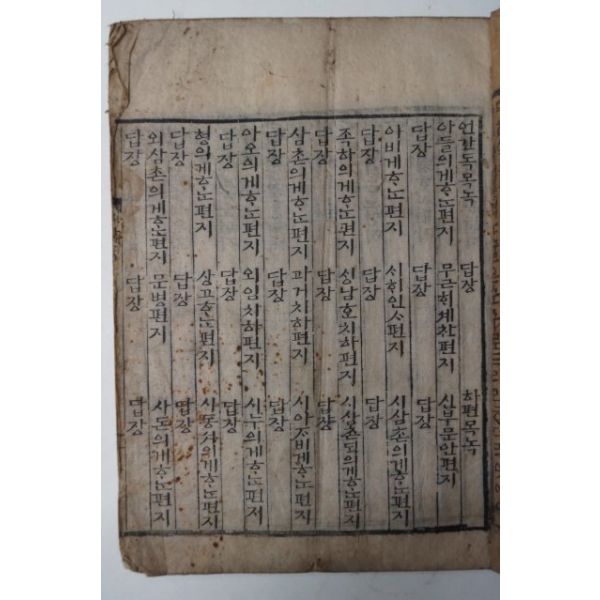 언간독목녹 답장 하편목녹
아들의게ᄒᆞᄂᆞᆫ편지 무근ᄒᆡ셰찬편지 신부문안편지
답장 답장 답장
아비게ᄒᆞᄂᆞᆫ편지 ᄉᆡᄒᆡ인ᄉᆞ편지 시삼촌의게ᄒᆞᄂᆞᆫ편지
답장 답장 답장
족하의게ᄒᆞᄂᆞᆫ편지 치하편지 시삼촌 의게ᄒᆞᄂᆞᆫ편지
답장 답장 답장
삼촌의게ᄒᆞᄂᆞᆫ편지 과거치하편지 시아ᄌᆞ비게ᄒᆞᄂᆞᆫ편지
답장 답장 답장
아오의게ᄒᆞᄂᆞᆫ편지 외임치하편지 시누의게ᄒᆞᄂᆞᆫ편지
답장 답장 답장
형의게ᄒᆞᄂᆞᆫ편지 상고ᄒᆞᄂᆞᆫ편지 의게ᄒᆞᄂᆞᆫ편지
답장 답장 답장
외삼촌의게ᄒᆞᄂᆞᆫ편지 문병편지 사돈의게ᄒᆞᄂᆞᆫ편지
답장 답장 답장